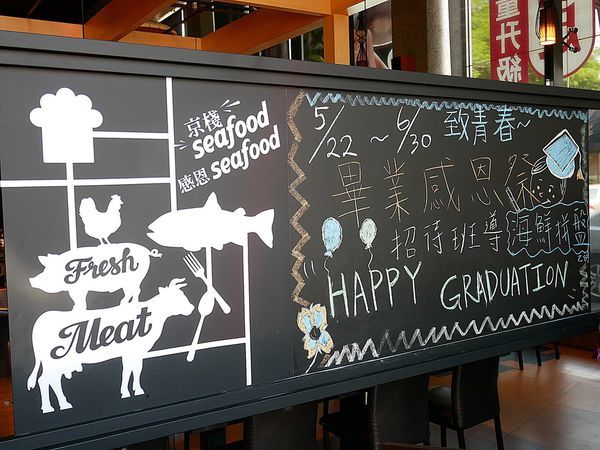 京棧
seafood
感恩
seafood
Fresh
Meat
5/22 ~ 6/30 致青春~
畢業感恩祭
招待班導 海鮮拼盤
HAPPY GRADUATION
量升級